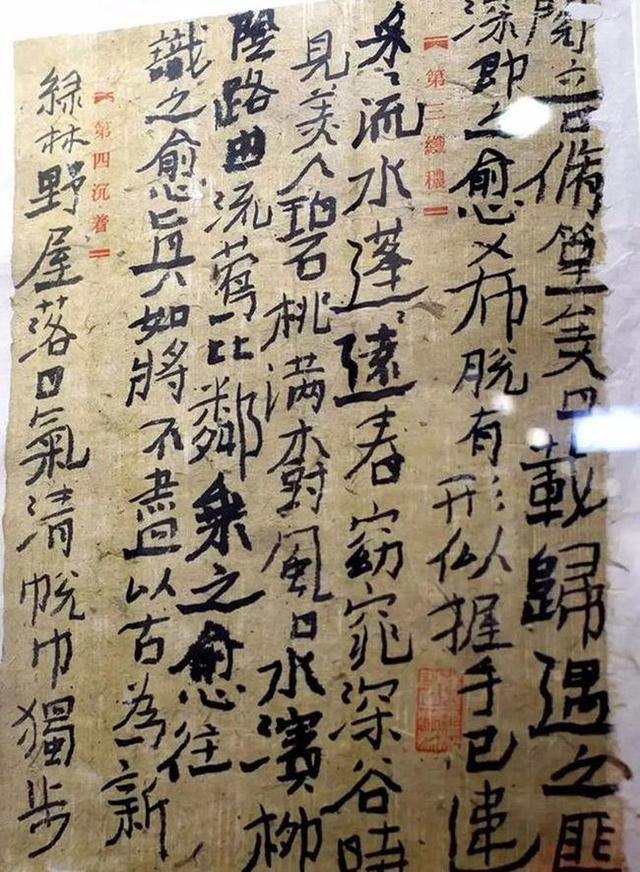 閱音脩篁美曰載歸遇之匪
深即之愈希脫有形似握手已違
第三纖穠
采〻流水蓬〻遠春窈窕深谷時
見美人碧桃滿樹風日水濱柳
陰路曲流鶯比鄰乘之愈往
識之愈眞如將不盡以古為新
第四沉着
綠林野屋落日氣清脫巾獨步